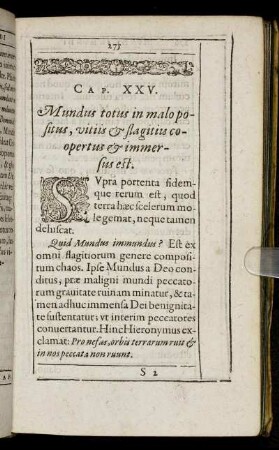 275
CAP. XXV.
Mundus totus in malo po-
situs, vitiis & flagitiis co-
opertus & immer-
sus est.
SUpra portenta fidem-
que rerum est, quod
terra hæc scelerum mo-
le gemat, neque tamen
deluscat.
Quid Mundus immundus? Est ex
omni flagitiorum genere composi-
tum chaos. Ipse Mundus a Deo con-
ditus, præ maligni mundi peccato-
rum gravitate ruinam minatur, & ta-
men adhuc immensa Dei benignita-
te sustentatur; vt interim peccatores
conuertantur. Hinc Hieronymus ex-
clamat: Pro nefas, orbis terrarum ruit &
in nos peccata non ruunt.
S 2